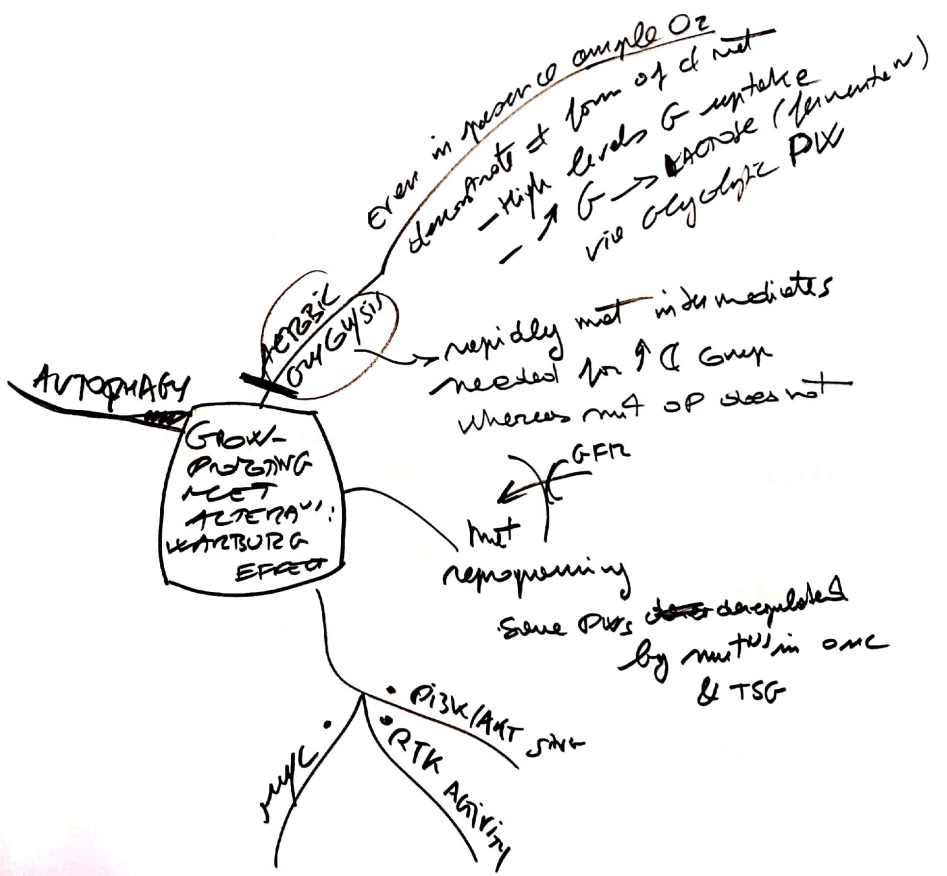 Even in presence ample O2
demonstrate ≠ form of d met
- High levels G uptake
- ↑ G → LACTOSE (fermentaⁿ)
via Glycolytic PW
AEROBIC
GLYCOLYSIS
→ rapidly met intermediates
needed for ↑ C
whereas mit OP does not
AUTOPHAGY
GROW-
PROMOTING
MET
ALTERAⁿˢ:
WARBURG
EFFECT
GFR
Met
reprogramming
Same PWs deregulated
by mutⁿˢ in onc
& TSG
• Pi3K/AKT
• RTK Activity
MYC •